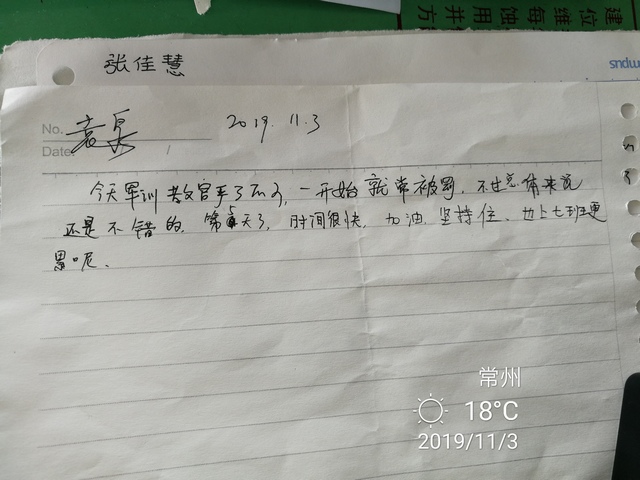 建
位
维每
蚀用
方井
sndw
张佳慧
No. 袁泉 2019.11.3
Date: /
今天军训教官手了 一开始就常被罚，不过总体来说
还是不错的，第五天了，时间很快，加油，坚持住、比上七班更
累呢、
常州
18°C
2019/11/3